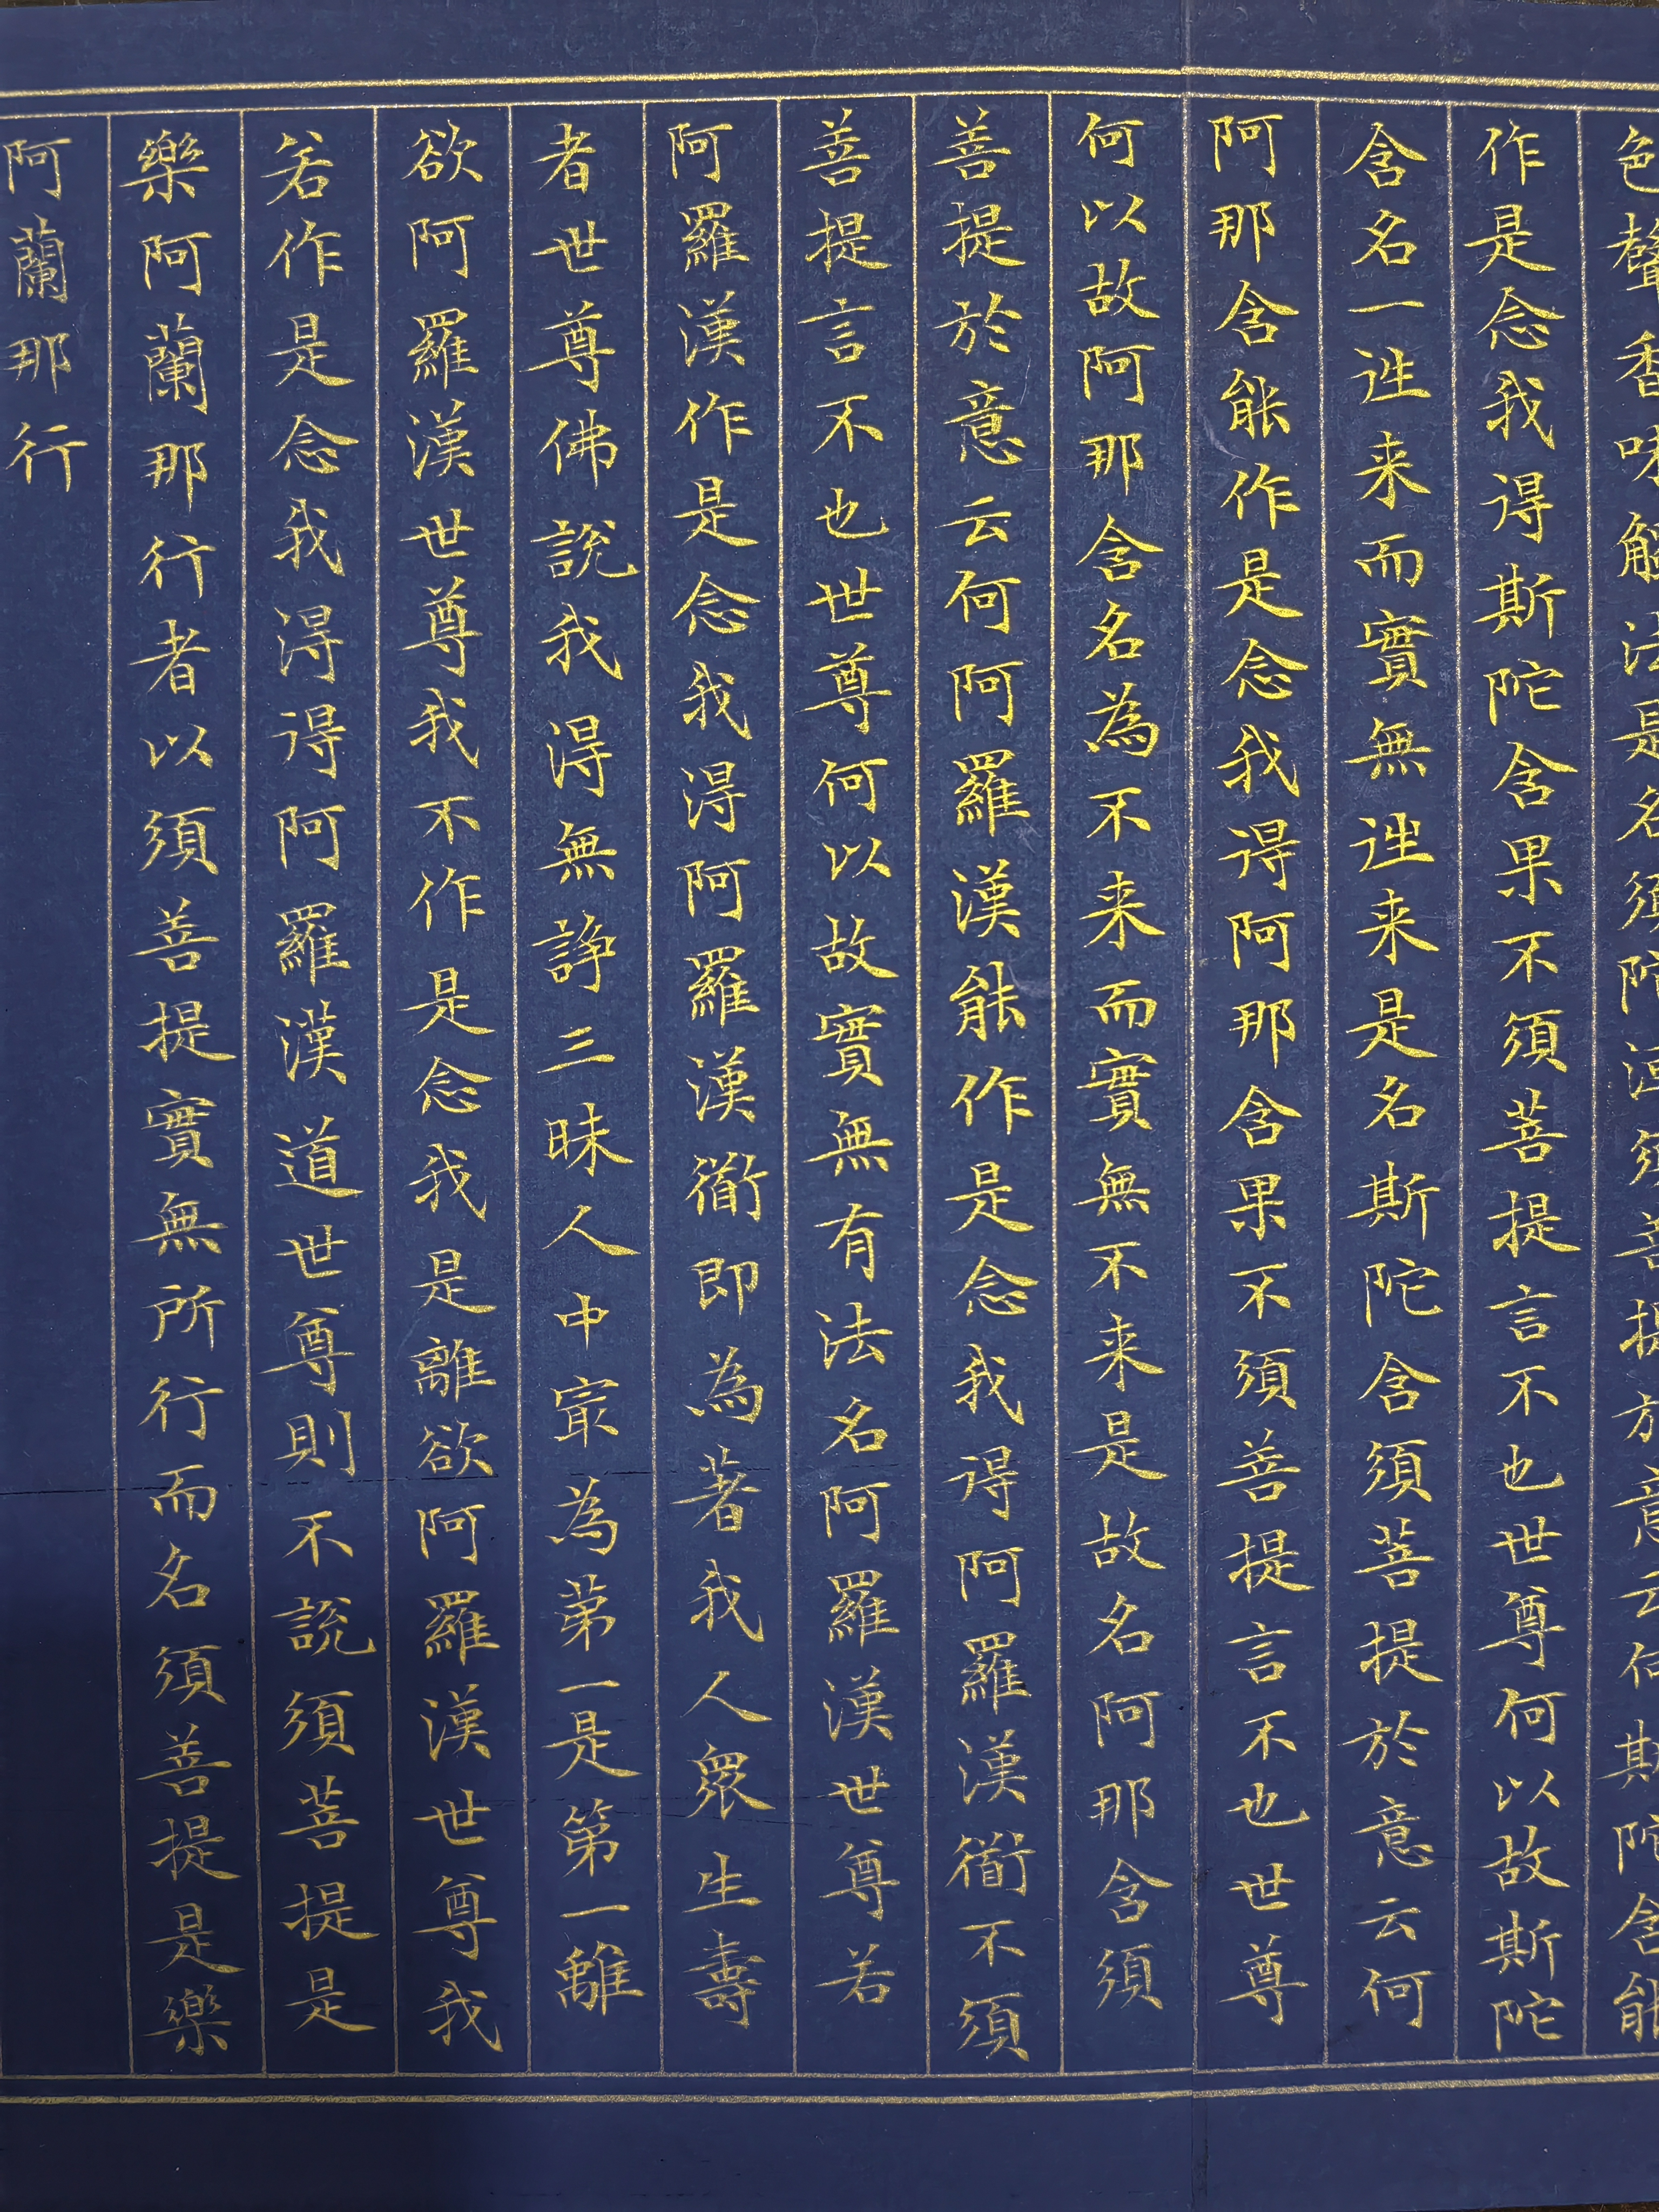 色聲香味觸法是名須陀洹須菩提於意云何斯陀含能
作是念我得斯陀含果不須菩提言不也世尊何以故斯陀
含名一往来而實無往来是名斯陀含須菩提於意云何
阿那含能作是念我得阿那含果不須菩提言不也世尊
何以故阿那含名為不来而實無不来是故名阿那含須
菩提於意云何阿羅漢能作是念我得阿羅漢衜不須
菩提言不也世尊何以故實無有法名阿羅漢世尊若
阿羅漢作是念我淂阿羅漢衜即為著我人眾生壽
者世尊佛說我淂無諍三昧人中冣為苐一是第一離
欲阿羅漢世尊我不作是念我是離欲阿羅漢世尊我
若作是念我淂得阿羅漢道世尊則不說須菩提是
樂阿蘭那行者以須菩提實無所行而名須菩提是樂
阿蘭那行